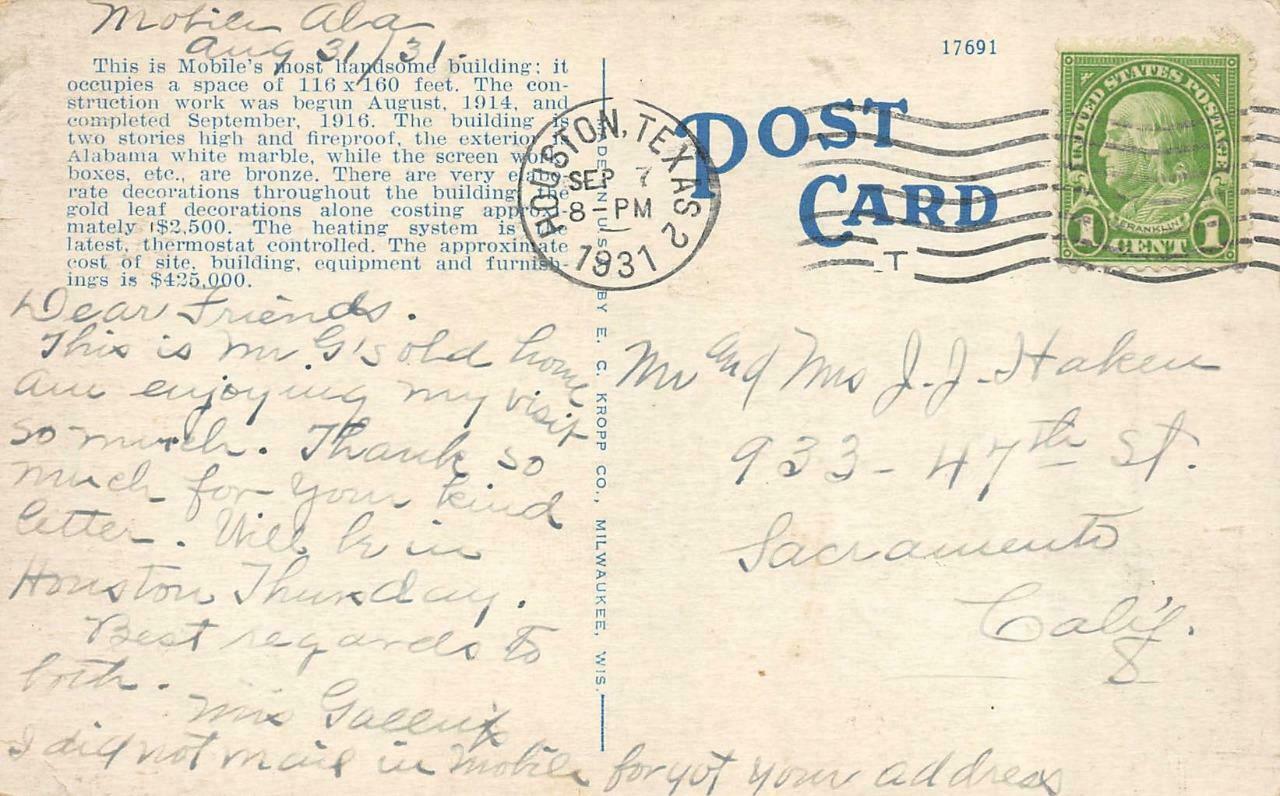 Mobile Ala
Aug 31/31.
This is Mobile's most handsome building; it
occupies a space of 116 x 160 feet. The con-
struction work was begun August, 1914, and
completed September, 1916. The building is
two stories high and fireproof, the exterior
Alabama white marble, while the screen work
boxes, etc., are bronze. There are very
rate decorations throughout the building
gold leaf decorations alone costing approxi-
mately $2,500. The heating system is
latest, thermostat controlled. The approximate
cost of site, building, equipment and furnish-
ings is $425,000.
Dear Friends.
This is Mr G's old home
am enjoying my visit
so much. Thank so
much for your kind
letter. Will be in
Houston Thursday.
Best regards to
both.
Mrs
I did not mail in Mobile forgot your address
MADE IN U.S. BY E. C. KROPP CO., MILWAUKEE, WIS.
HOUSTON, TEXAS 2
SEP 7
8-PM
1931
17691
POST
CARD
UNITED STATES POSTAGE
FRANKLIN
1 CENT 1
Mr and Mrs J. J. Haken
933-47th St.
Sacramento
Calif.
8